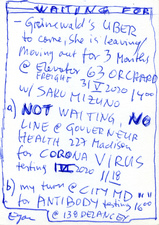 WAITING FOR
- Grünewald's UBER
to come, she is leaving/
Moving out for 3 Months/
@ Elevator 63 ORCHARD
FREIGHT 31 V 2020 1400
w/ SAKU MIZUNO
a) NOT WAITING, NO
LINE @ GOUVERNEUR
HEALTH 227 Madison
for CORONA VIRUS
testing 1 VI 2020 1118
b) my turn @ CITY MD " "
for ANTIBODY testing 1600
@ 138 DELANCEY